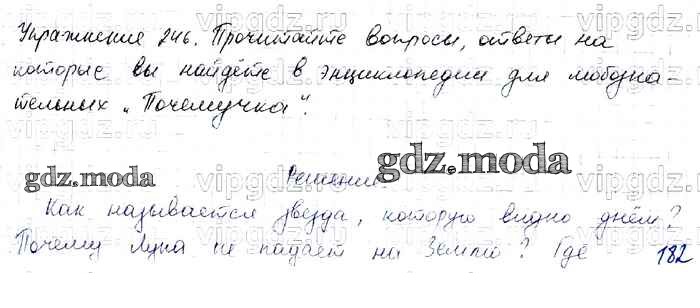 Упражнение 246. Прочитайте вопросы, ответы на
которые вы найдёте в энциклопедии для любозна-
тельных „Почемучка".
Решение
gdz.moda
gdz.moda
Как называется звезда, которую видно днём?
Почему Луна не падает на Землю? Где
182
vipgdz.ru vipgdz.ru vipgdz.ru vipgdz.ru